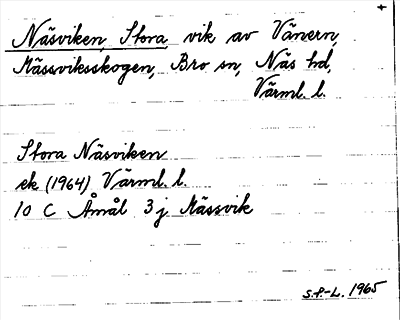 +
Näsviken, Stora, vik av Vänern,
Mässviksskogen, Bro sn, Näs hd,
Värml. l.
Stora Näsviken
ek (1964) Värml. l.
10 C Åmål 3 j Mässvik
S.F-L. 1965